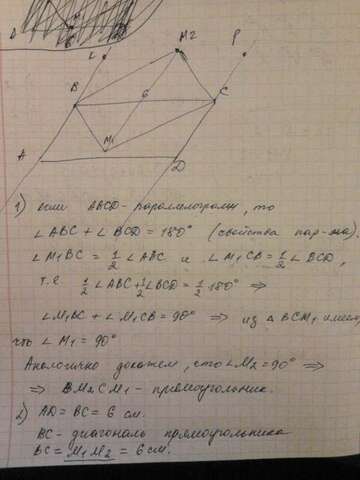 L
M2
P
B
6
C
M1
A
D
1) если ABCD - параллелограмм, то
∠ABC + ∠BCD = 180° (свойства пар-ма).
∠M1BC = 1/2 ∠ABC и ∠M1CB = 1/2 ∠BCD,
т.е. 1/2 ∠ABC + 1/2 ∠BCD = 1/2 180° ⇒
∠M1BC + ∠M1CB = 90° ⇒ из △BCM1 имеем,
что ∠M1 = 90°
Аналогично докажем, что ∠M2 = 90° ⇒
⇒ BM2CM1 - прямоугольник.
2) AD = BC = 6 см.
BC - диагональ прямоугольника
BC = M1M2 = 6 см.